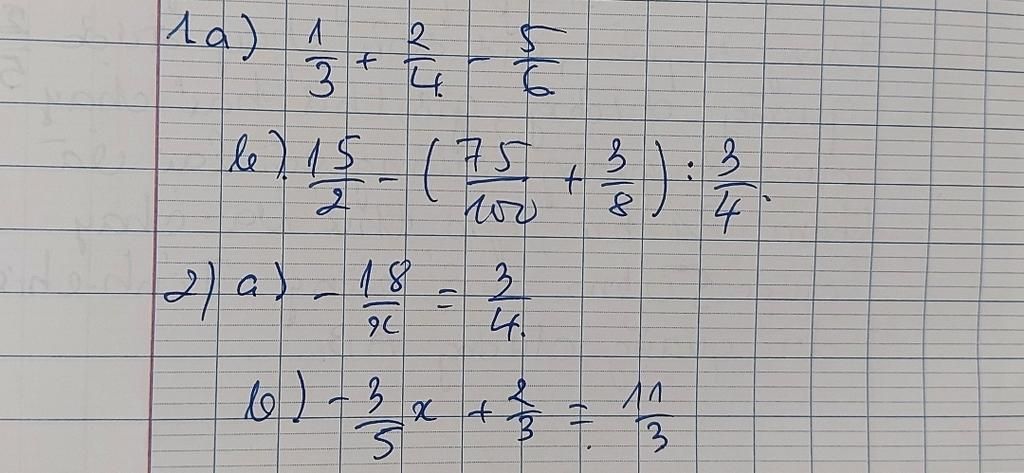 1a) 1/3 + 2/4 - 5/6
b) 15/2 - (75/100 + 3/8) : 3/4.
2) a) - 18/x = 3/4.
b) - 3/5 x + 2/3 = 11/3